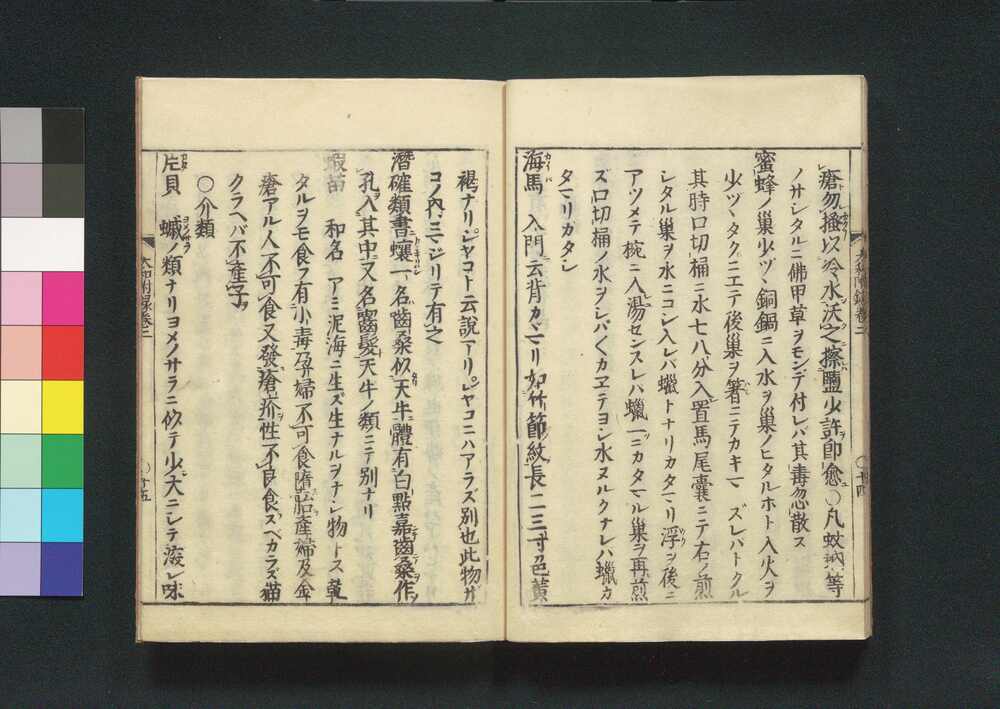 瘡勿掻以冷水沃之擦鹽少許即愈〇凡蚊蚋等
ノサシタルニ佛甲草ヲモンデ付レバ其毒忽散ス
蜜蜂ノ巣少ヅヽ銅鍋ニ入水ヲ巣ノヒタルホト入火ヲ
少ヅヽタクニエテ後巣ヲ箸ニテカキマズレバトクル
其時口切桶ニ水七八分入置馬ノ尾嚢ニテ右ノ煎
シタル巣ヲ水ニコシ入レバ蠟トナリカタマリ浮ヲ後ニ
アツメテ椀ニ入湯センスレハ蠟一ニカタマル巣ヲ再煎
ズ口切桶ノ水ヲシバ〱カヱテヨシ水ヌルクナレハ蠟カ
タマリカタシ
海馬 入門云背カヾマリ如竹節紋長二三寸色黄
褐ナリシヤコト云説アリシヤコニハアラズ別也此物ガ
コノ内ニマジリテ有之
潛確類書蠰一名齧桑似天牛體有白點嘉齧桑作
孔入其中又名齧髪天牛ノ類ニテ別ナリ
蝦苗 和名 アミ泥海ニ生ズ生ナルヲナシ物トス乾
タルヲモ食フ有小毒孕婦不可食墮胎産婦及金
瘡アル人不可食又發瘡疥性不良食スベカラズ猫
クラヘバ不産子
〇介類
片貝 蠘ノ類ナリヨメノサラニ似テ少大ニシテ淡シ味
大和附録巻二
〇十四
〇十五